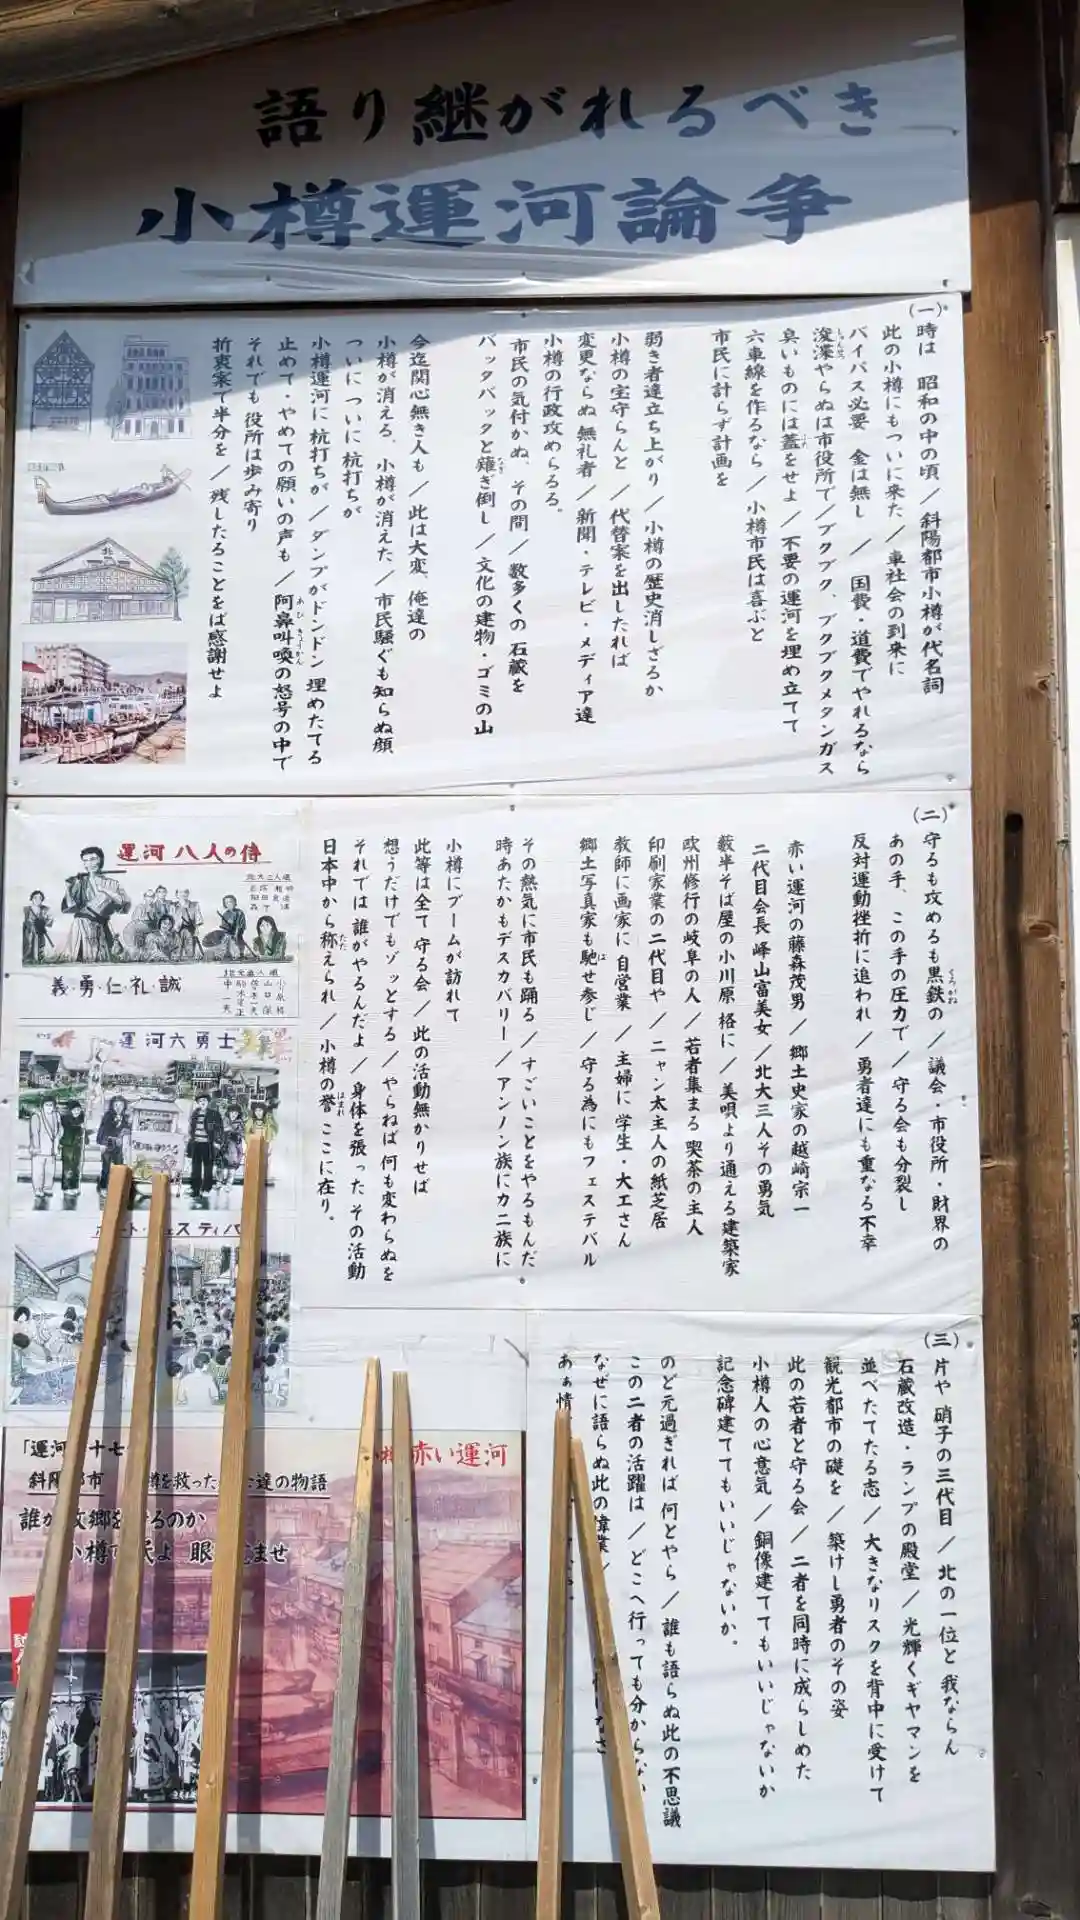 語り継がれるべき
小樽運河論争
(一)
時は 昭和の中の頃／斜陽都市小樽が代名詞
此の小樽にもついに来た／車社会の到来に
バイパス必要 金は無し ／ 国費・道費でやれるなら
浚渫やらぬは市役所で／ブクブク、ブクブクメタンガス
臭いものには蓋をせよ／不要の運河を埋め立てて
六車線を作るなら ／ 小樽市民は喜ぶと
市民に計らず計画を
弱き者達立ち上がり ／ 小樽の歴史消しざるか
小樽の宝守らんと ／代替案を出したれば
変更ならぬ 無礼者／新聞・テレビ・メディア達
小樽の行政攻めらるる。
市民の気付かぬ、その間／数多くの 石蔵を
バッタバッタと薙ぎ倒し ／ 文化の建物・ゴミの山
今迄関心無き人も ／此は大変、俺達の
小樽が消える、小樽が消えた／市民騒ぐも知らぬ顔
ついに ついに 杭打ちが
小樽運河に杭打ちが ／ ダンプがドンドン 埋めたてる
止めて・やめての願いの声も ／阿鼻叫喚の怒号の中で
それでも 役所は歩み寄り
折衷案で半分を ／ 残したることをば感謝せよ
(二)
守るも攻めるも黒鉄の ／ 議会・市役所・財界の
あの手、この手の圧力で／守る会も分裂し
反対運動挫折に追われ／勇者達にも重なる不幸
赤い運河の藤森茂男／郷土史家の越崎宗一
二代目会長 峰山富美女／北大三人その勇気
藪半そば屋の小川原 格に ／ 美唄より通える建築家
欧州修行の岐阜の人 ／若者集まる 喫茶の主人
印刷家業の二代目や ／ニャン太主人の紙芝居
教師に画家に 自営業 ／ 主婦に 学生・大工さん
郷土写真家も馳せ参じ／守る為にもフェステバル
その熱気に市民も踊る ／ すごいことをやるもんだ。
時あたかもデスカバリー／アンノン族にカニ族に
小樽にブームが訪れて
此等は全て 守る会 ／ 此の活動無かりせば
想うだけでもゾッとする ／ やらねば何も変わらぬを
それでは 誰がやるんだよ ／ 身体を張った その活動
日本中から称えられ ／ 小樽の誉 ここに在り。
運河 八人の侍
義・勇・仁・礼・誠
運河六勇士
(三)
片や 硝子の三代目 ／ 北の一位と 我ならん
石蔵改造・ランプの殿堂 ／ 光輝くギヤマンを
並べたてたる志 ／ 大きなリスクを背中に受けて
観光都市の礎を ／ 築けし勇者のその姿
此の若者と守る会 ／二者を同時に成らしめた
小樽人の心意気 ／ 銅像建ててもいいじゃないか
記念碑建ててもいいじゃないか。
のど元過ぎれば 何とやら ／ 誰も語らぬ此の不思議
この二者の活躍は ／ どこへ行っても分からない
なぜに語らぬ此の偉業／
あぁ情
「運河 十七
斜陽都市 樽を救った 達の物語
赤い運河